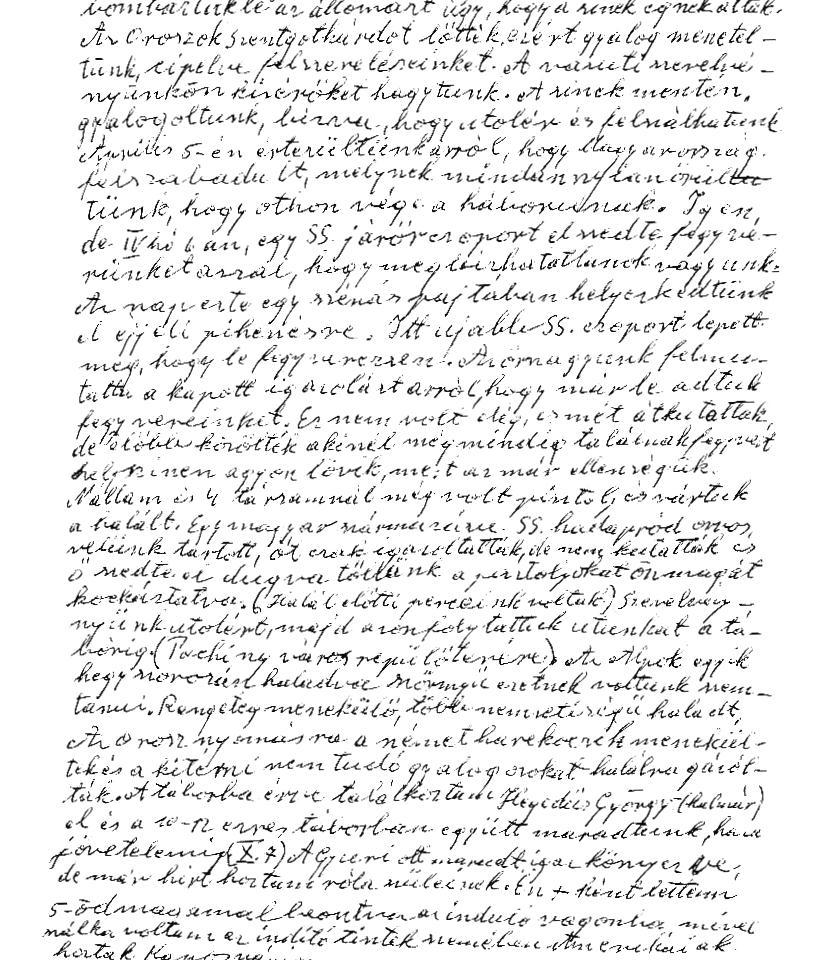 bombázták le az állomást úgy, hogy a sínek égnek álltak.
Az Oroszok Szentgotthárdot lőtték, ezért gyalog menetel-
tünk, cipelve felszereléseinket. A vasuti szerelvé-
nyünkön kisérőket hagytunk. A sínek mentén,
gyalogoltunk, bízva, hogy utolér és felszálhatunk
Április 5-én értesültünk arról, hogy Magyarország
felszabadult, melynek mindannyian örültü
tünk, hogy othon vége a háborúnak. Igen,
de IV hó ban, egy SS. járőrcsoport elszedte fegyve-
rünket azzal, hogy megbízhatatlanok vagyunk.
Az nap este egy szénás pajtában helyezkedtünk
el éjjeli pihenésre. Itt ujabb SS. csoport lepett
meg, hogy le fegyverezzen. Az őrnagyunk felmu-
tatta a kapott igazolást arról, hogy már le adtuk
fegyvereinket. Ez nem volt elég, ismét átkutattak,
de előbb közölték akinél mégmindég találnak fegyvert
helyszínen agyon lövik, mert az már ellenségük.
Nállam és 4 társamnál még volt pisztoly, és vártuk
a halált. Egy magyar származású SS. hadapród orvos,
velünk tartott, őt csak igazoltatták, de nem kutatták és
ő szedte el dugva tőllünk a pisztolyokat önmagát
kockáztatva. (Halál előtti perceink voltak) Szerelvény-
nyünk utolért, majd azon folytattuk utunkat a tá-
borig. (Pochiny város repülőterére) Az Alpok egyik
hegy sorozán haladva szörnyű esetnek voltunk szem-
tanui. Rengeteg menekülő, több nemzetiségü haladt,
Az orosz nyomásra a német harckocsik menekül-
tek és a kitérni nem tudó gyalogosokat halálra gázol-
ták. A táborba érve találkoztam Hegedüs György (halmár)
el és a 10-12 ezres táborban együtt maradtunk, haza
jövetelemig (X. 7) A Gyuri ott maradt igaz könyez ve,
de már hírt hoztam róla szüleinek. Én + ként lettem
5-ödmagammal beontva az induló vagonba, mivel
nálka voltam az indító tisztek szemében Amerikaiak
hoztak